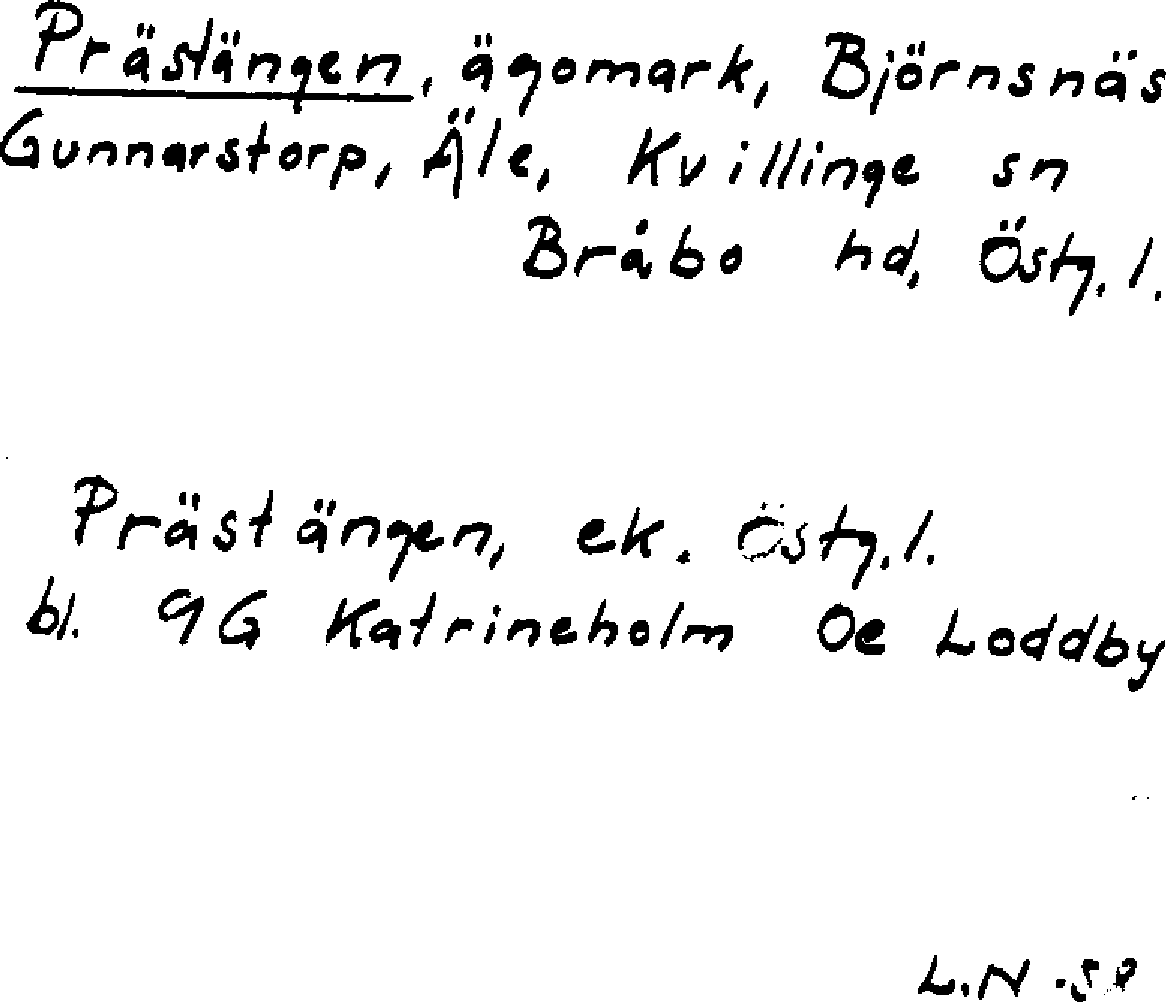 Prästängen, ägomark, Björnsnäs
Gunnarstorp, Äle, Kvillinge sn
Bråbo hd, Östg. l.
Prästängen, ek. Östg. l.
bl. 9G Katrineholm Oe Loddby
L.N